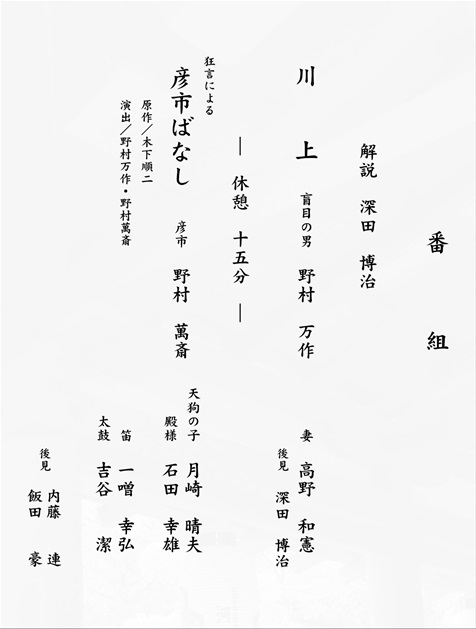 番組
解説 深田 博治
川上 盲目の男 野村 万作 妻 高野 和憲
後見 深田 博治
― 休憩 十五分 ―
狂言による
彦市ばなし 彦市 野村 萬斎 天狗の子 月崎 晴夫
殿様 石田 幸雄
原作/木下順二
演出/野村万作・野村萬斎
笛 一噌 幸弘
太鼓 吉谷 潔
後見 内藤 連
飯田 豪